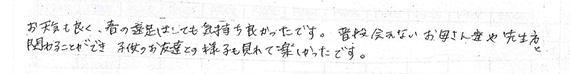 お天気も良く、春の遠足はとても気持ち良かったです。普段会えないお母さん達や先生方と
関わることができ 子供のお友達との様子も見れて楽しかったです。